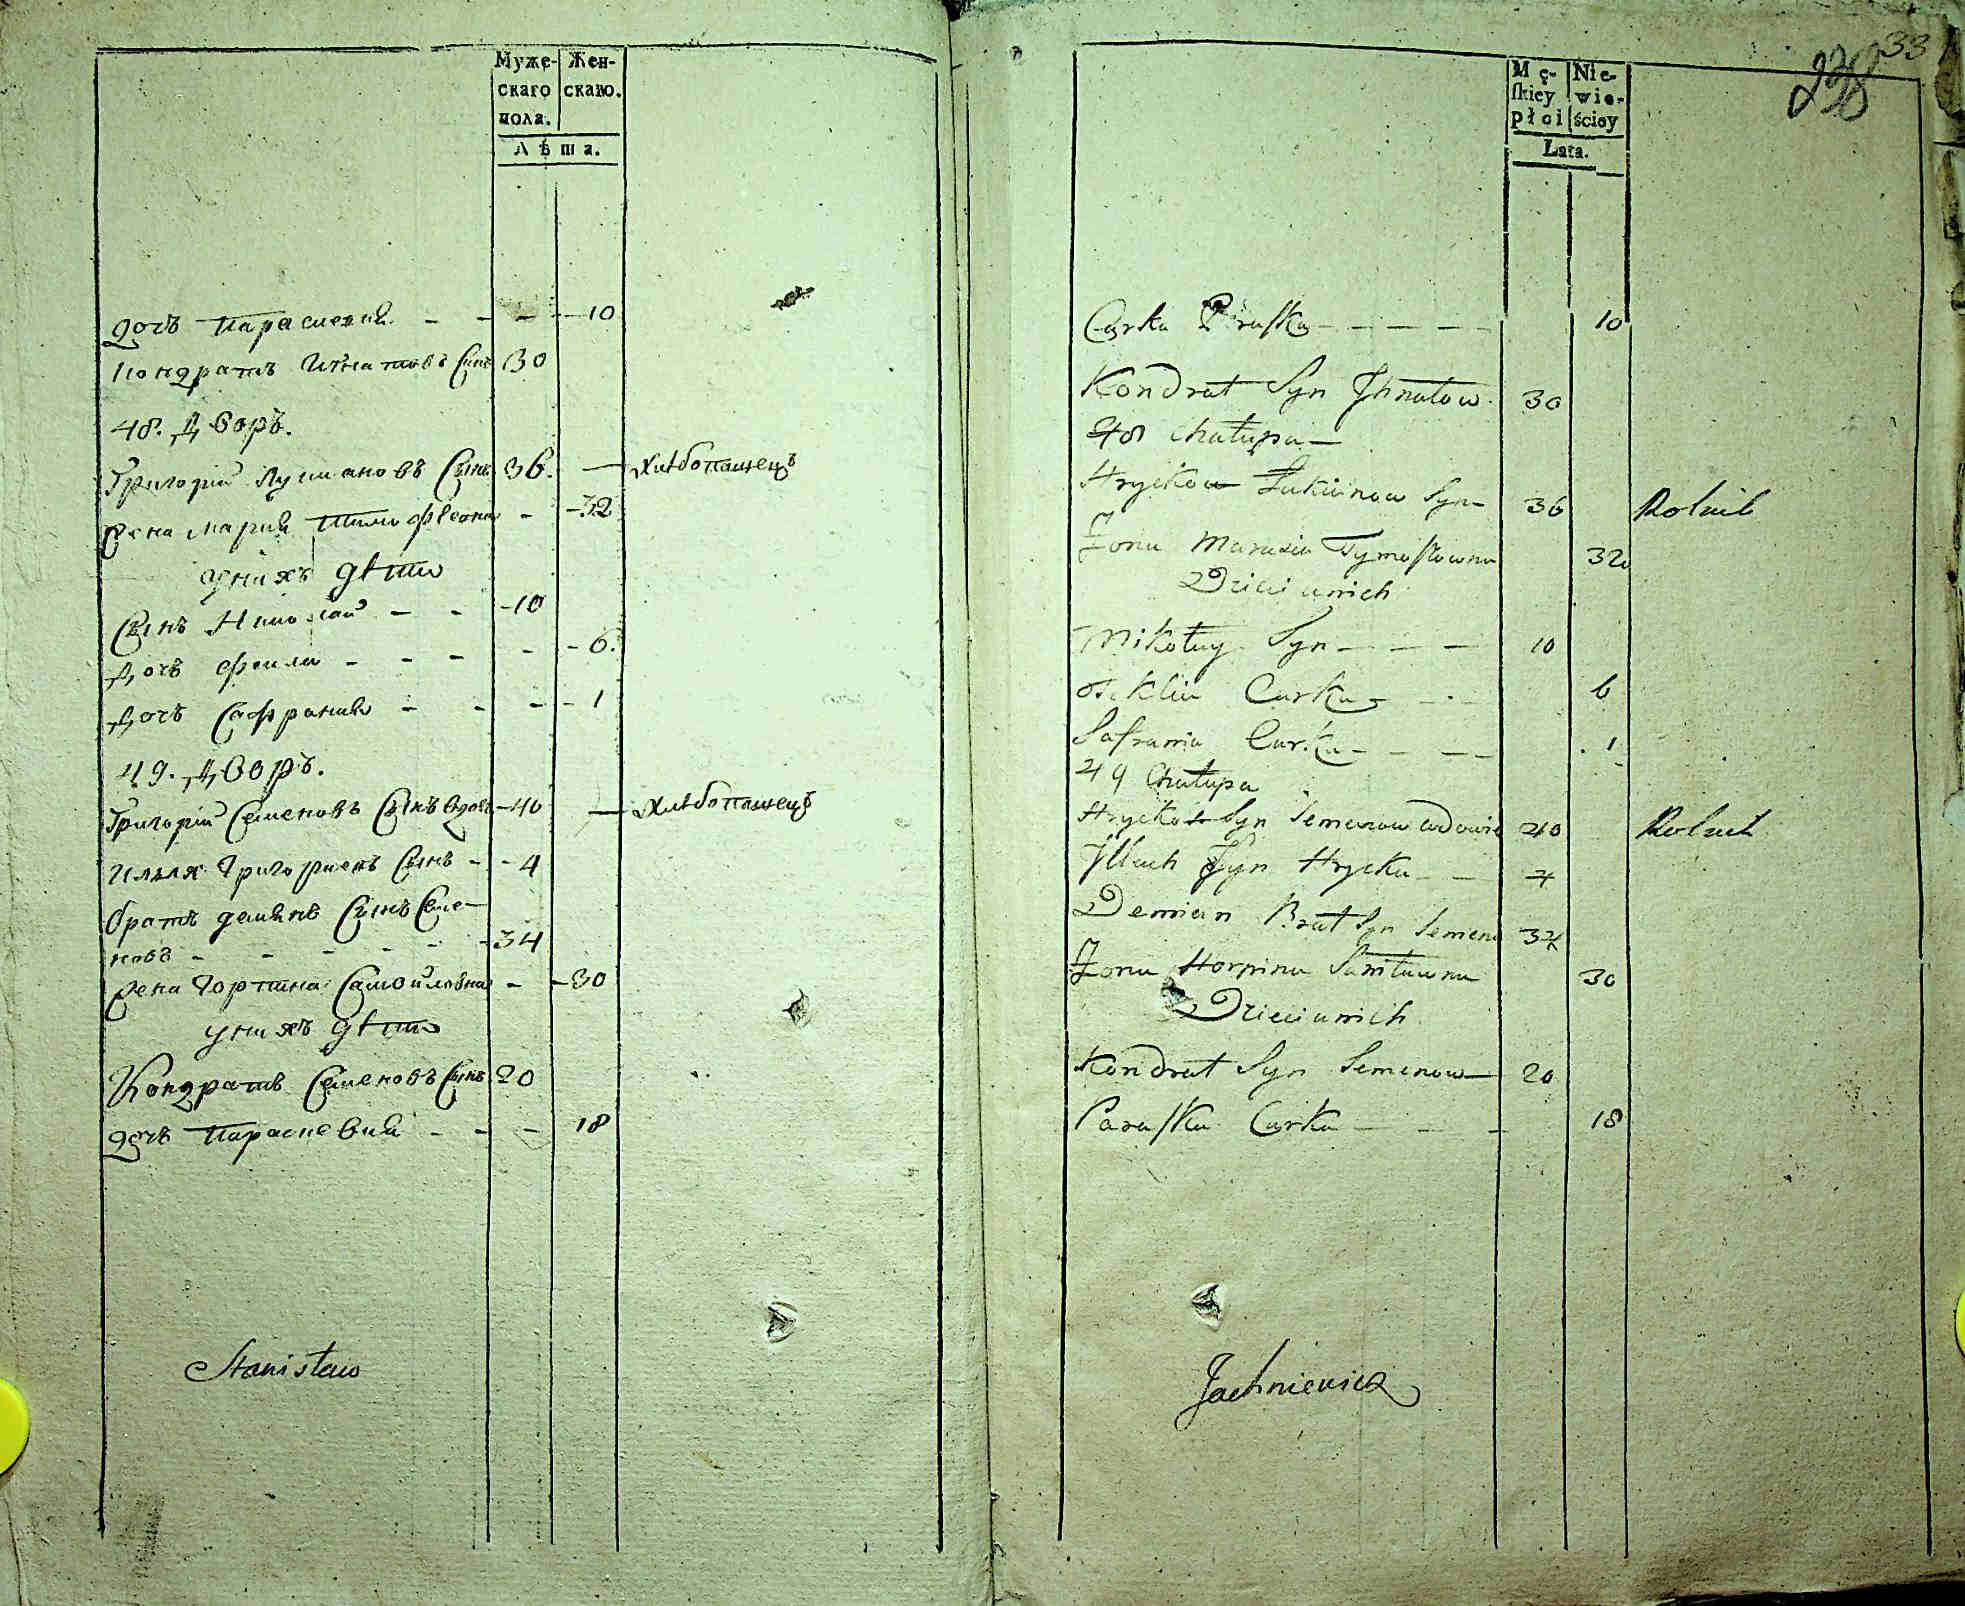 Муже-
скаго
пола.
Жен-
скаго.
Лѣта.
дочъ Параскевия - - - - 10
Кондратъ Игнатовъ Сынъ 30
48. Дворъ.
Григорій Лукиановъ Сынъ 36. — Хлѣбопашецъ
Жена Мария Тимофѣевна - - 32
у нихъ дѣти
Сынъ Николай - - - 10
Дочъ Фекла - - - - - 6.
Дочъ Сафрания - - - - 1
49. Дворъ.
Григорій Семеновъ Сынъ вдовъ - 40 — Хлѣбопашецъ
Илья Григориевъ Сынъ - - 4
братъ Демянъ Сынъ Семе-
новъ - - - - - - 34
Жена Горпина Самойловна - - 30
у нихъ дѣти
Кондратъ Семеновъ Сынъ 20
дочъ Параскевия - - - 18
Stanisław
33
238
Mę-
skiey
płci
Nie-
wie-
ściey
Lata.
Curka Paraska - - - - - 10
Kondrat Syn Ihnatow 30
48 Chałupa —
Hrycko Łukianow Syn - 36 Rolnik
Żona Marusia Tymoszowna 32
Dzieci u nich
Mikołay Syn - - - 10
Teklia Curka - - - 6
Saframia Curka - - - 1
49 Chałupa
Hrycko Syn Semenow wdowiec 40 Rolnik
Illiach Syn Hrycka - - 4
Demian Brat Syn Semena 34
Żona Horpina Samiławna 30
Dzieci u nich
Kondrat Syn Semenow - 20
Paraska Curka - - - 18
Jachniewicz